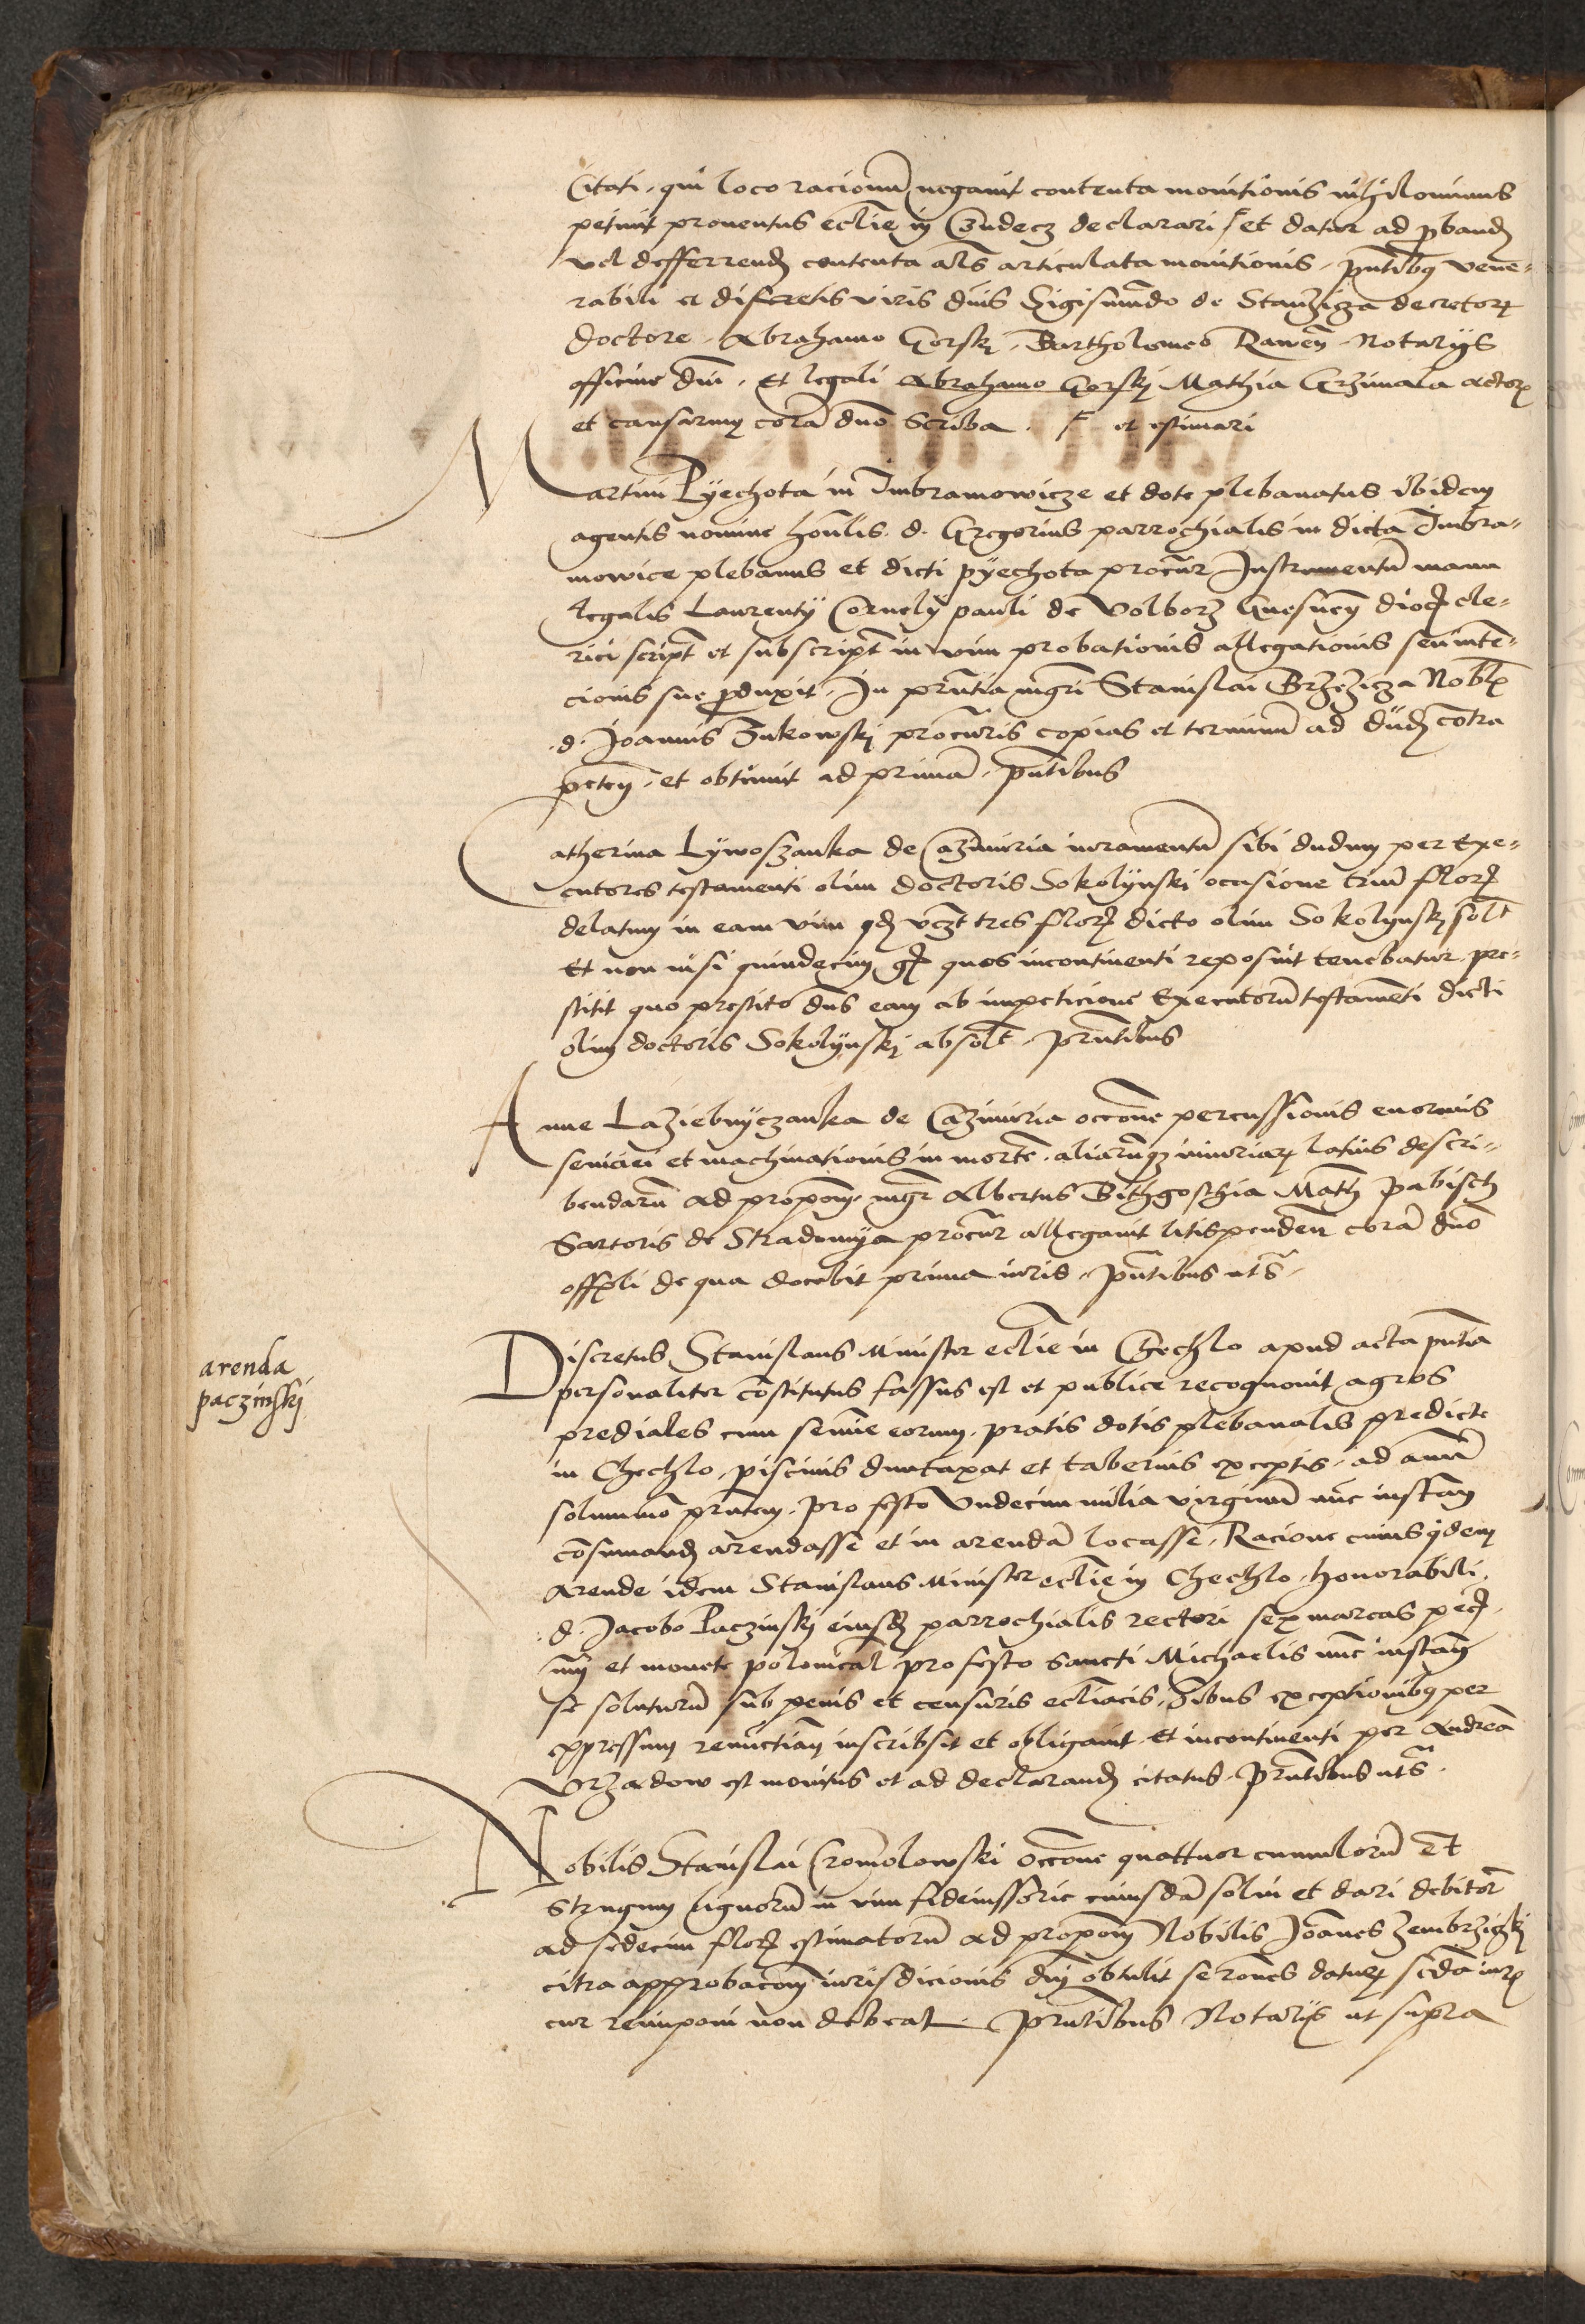 Citati, qui loco racionum negavit contenta monitionis nihilominus
petivit proventus ecclie in Czudecz declarari et datur ad pband
vel defferrend contenta als articulata monitionis, pntibq vene-
rabili et discretis viris dnis Sigismundo de Stanzicza decretor
doctore, Abrahamo Gorskj, Bartholomeo Rawen Notarijs
officine dni, Et legali Abrahamo Gorskj Mathia Grzimala actor
et causarum cora dno Scriba. et estimari
Martini Pyechota in Imbramowicze et dote plebanatus ibidem
agentis nomine honlis d. Gregorius parrochialis in dicta Imbra-
mowice plebanus et dicti pyechota procur Instrumentu manu
legalis Laurentij Cornelij pauli de Volborz Gnesnen dioc cle-
rici script et subscript in vim probationis allegationis seu inte-
cionis sue produxit, In pntia mgri Stanislai Brzezicza Nobl
d. Joannis Zukowskj procuris copias et terminu ad dud contra
peten, et obtinuit ad prima, pntibus
Catherina Lywoszanka de Cazimiria iuramentu sibi dudum per Exe-
cutores testamenti olim doctoris Sokolynski ocasione trium flor
delatum in eam vim qd vczt tres flor dicto olim Sokolynskj solt
Et non nisi quindecim gr quos incontinenti reposuit tenebatur pre-
stitit quo prestito dns eam ab impeticione Executoru testamenti dicti
olim doctoris Sokolynskj absolt, pntibus
Anne Laziebnyczanka de Cazimiria occone percussionis enormis
seviciei et machinationis in morte, aliarumqz iniuriar latius descri-
bendaru ad propon, mgr Albertus Bithgoschia Math Pabisch
Sartoris de Stradomya procur allegavit litispenden cora dno
offli de qua docebit prima iuris, pntibus uts.
arenda
paczinskj
Discretus Stanislaus Minister ecclie in Chechlo apud acta pntia
personaliter constitutus fassus est et publice recognovit agros
prediales cum semine eorum, pratis dotis plebanalis predicte
in Chechlo, piscinis duntaxat et tabernis exceptis, ad annu
solummo pntem, pro festo Undecim milia virginum nuc instan
consumand arendasse et in arenda locasse, Racione cuius qdem
arende idem Stanislaus Minister ecclie in Chechlo, honorabili
d. Jacobo Paczinskj eiusd parrochialis rectori sex marcas pec
nu et monete polonical pro festo sancti Michaelis nunc instan
se soluturu sub penis et censuris eccliacis, oibus exceptionibq per
expressum renunctian inscribsit et obligavit, Et incontinenti per Andrea
Vrzadow est monitus et ad declarand citatus, Pntibus uts.
Nobilis Stanislai Cromolowski occone quattuor cumuloru et
Strugum lignoru in vim fideiussorie cuiusda solui et dari debitor
ad sedecim flor estimatoru ad propon Nobilis Joannes Zembrzizkj
citra approbacom iurisdicionis dni obtulit se rones datur scda iur
cur reimponi non debeat. Pntibus Notarijs ut supra